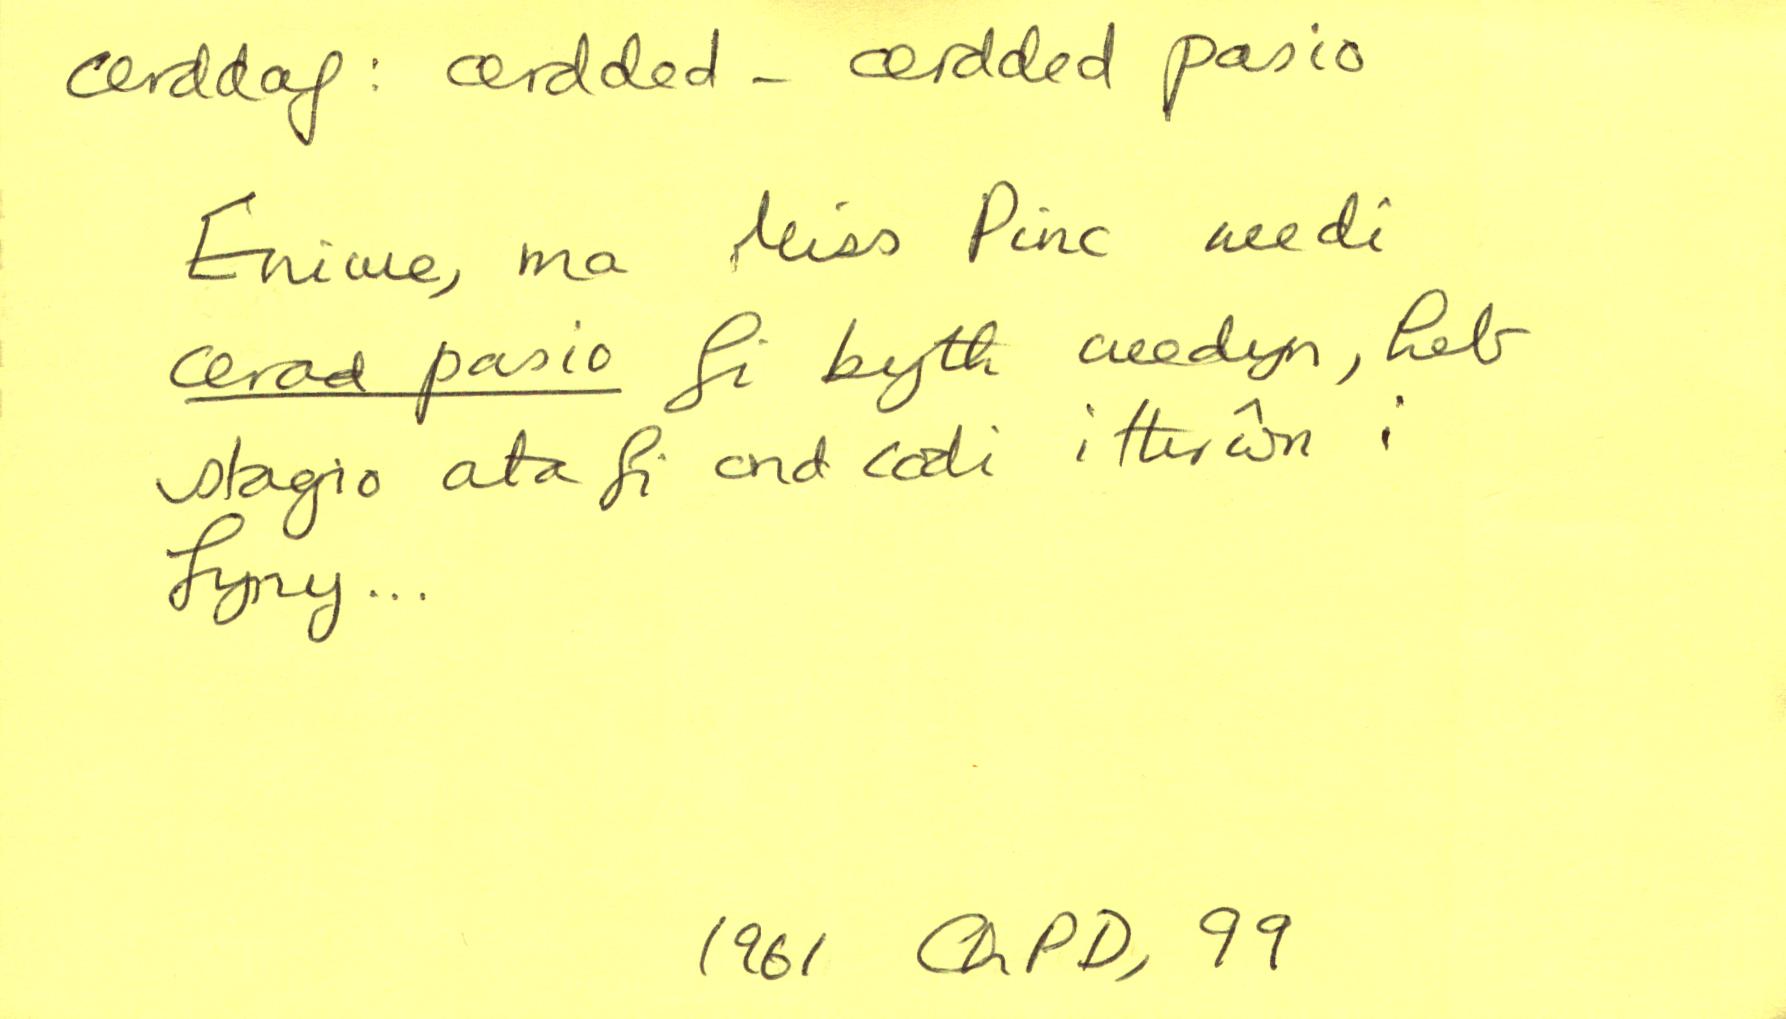 cerddaf: cerdded - cerdded pasio
Eniwe, ma Miss Pinc wedi
cerad pasio fi byth wedyn, heb
stagio ata fi ond codi i thrŵn i
fyny...
1961 ChPD, 99